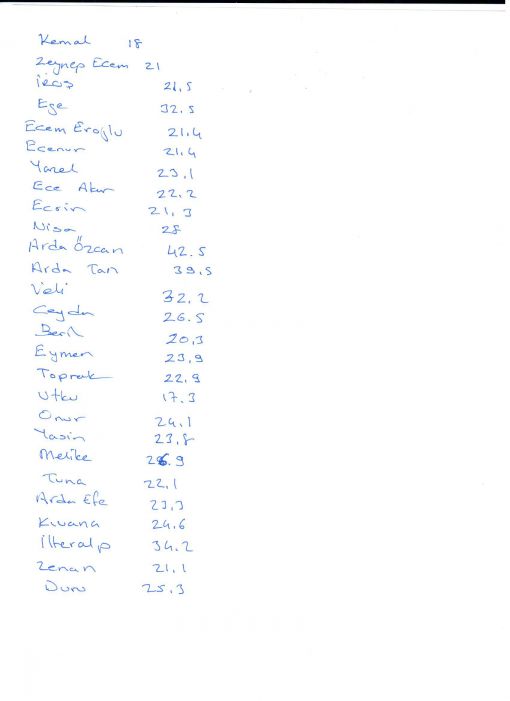 Kemal 18
Zeynep Ecem 21
21,5
Ege 32.5
Ecem Eroğlu 21.4
Ecenur 21.4
23.1
Ece 22.2
Ecrin 21,3
Nisa 28
Arda Özcan 42.5
Arda Tan 39,5
Veli 32.2
Ceyda 26.5
Beril 20,3
Eymen 23,9
Toprak 22,9
Utku 17.3
Onur 24,1
Yasin 23,8
Melike 26.9
Tuna 22,1
Arda Efe 23,3
24,6
İlteralp 34.2
Zenan 21,1
Duru 25.3